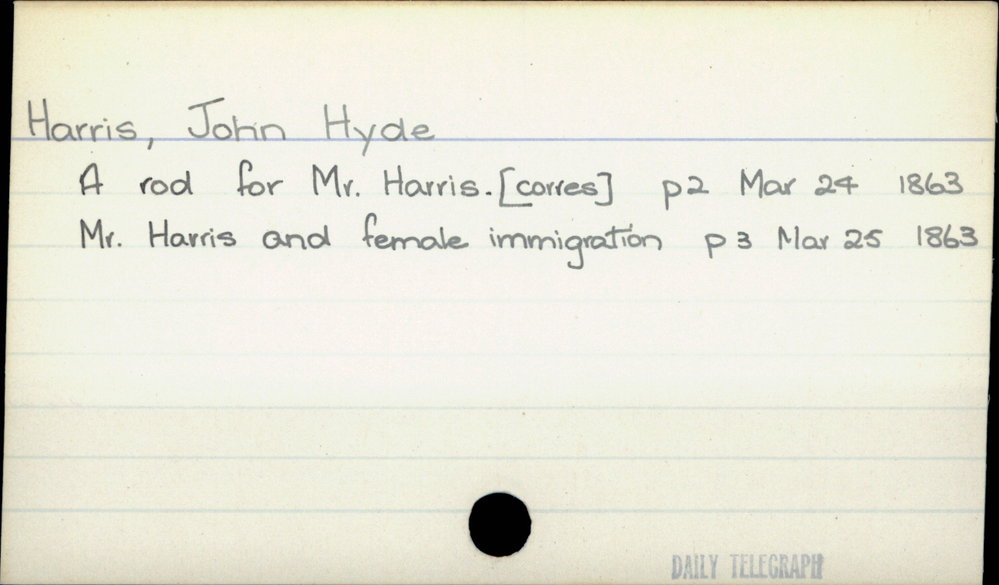 Harris, John Hyde
A rod for Mr. Harris. [corres] p2 Mar 24 1863
Mr. Harris and female immigration p 3 Mar 25 1863
DAILY TELEGRAPH